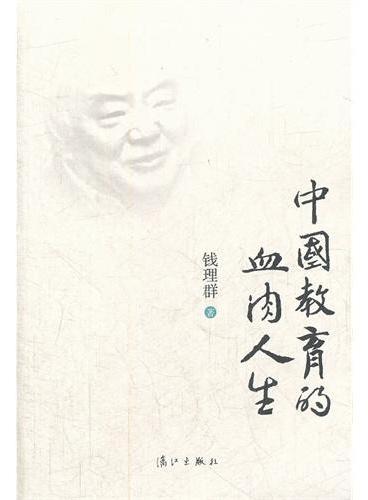 中國教育的
血肉人生
钱理群 著
漓江出版社